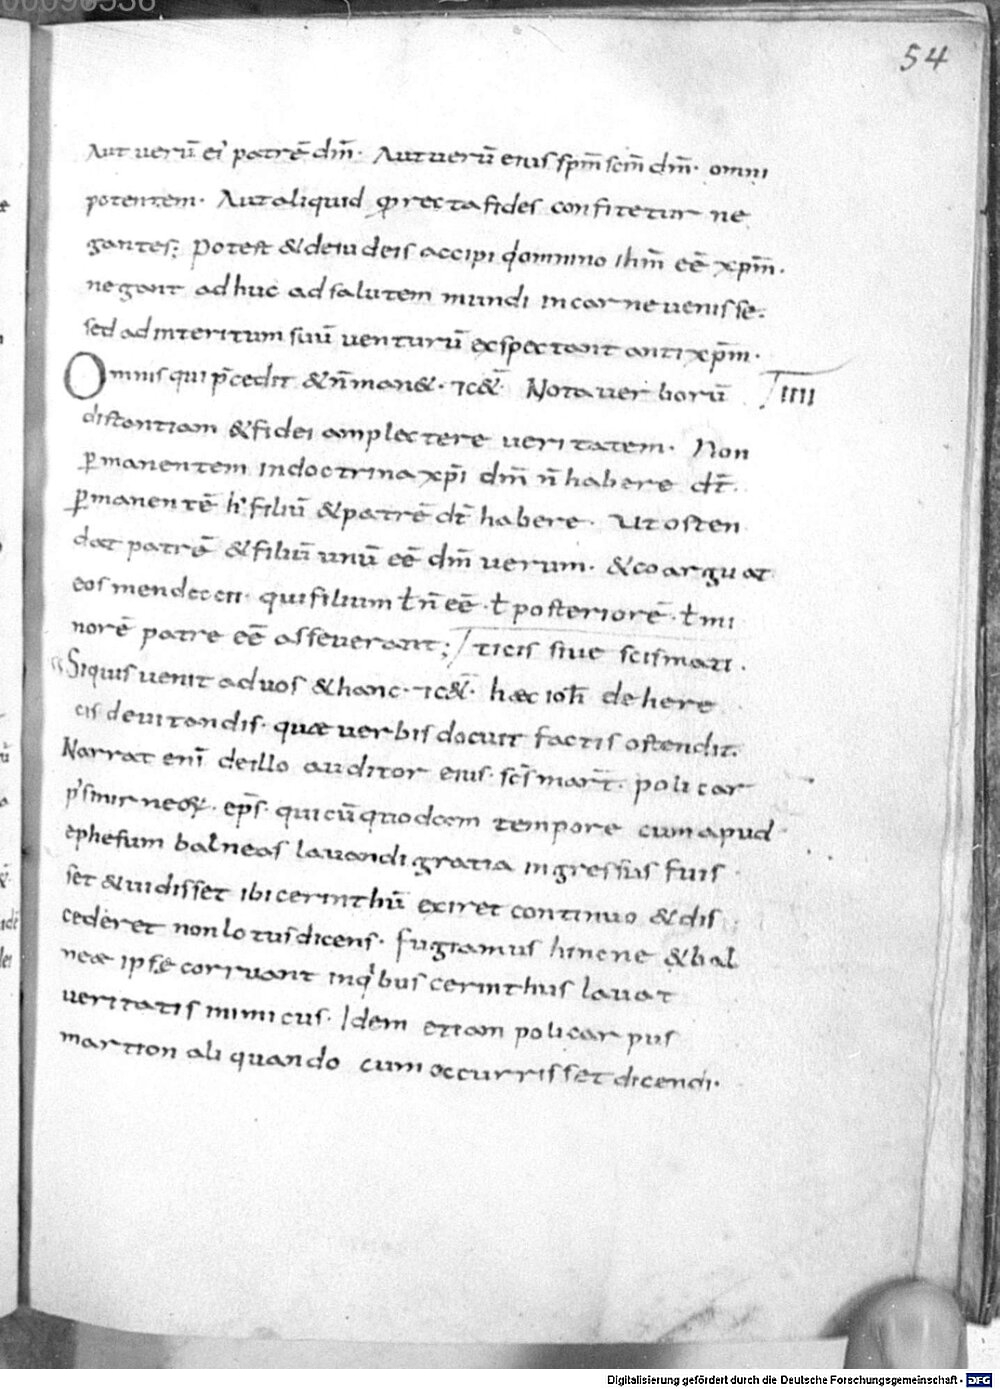 00096538
54
Aut uerū ei' patrē dm̄. Aut uerū eius spm̄ scm̄ dm̄. omni
potentem. Aut aliquid qđ recta fides confitetur ne
gantes; Potest & de iudeis accipi qđ omnino ihm̄ eē xpm̄.
negant adhuc ad salutem mundi in carne uenisse.
sed ad interitum suū uenturū exspectant antixpm̄.
Omnis qui p̄cedit & n̄ man&. &c&. Nota uerborū
IIII
distantiam & fidei amplectere ueritatem. Non
ꝑmanentem in doctrina xpī dm̄ n̄ habere dt̄.
ꝑmanentē h' filiū & patrē dt̄ habere. Ut osten
dat patrē & filiū unū eē dm̄ uerum. & coarguat
eos mendecii. qui filium ł n̄ eē. ł posteriorē. ł mi
norē patre eē asseuerant; / ticis siue scismati.
Siquis uenit ad uos & hanc. &c&. hæc ioh̄ de here
cis deuitandis. quæ uerbis docuit factis ostendit.
Narrat enī de illo auditor eius. scs̄ mart̄. policar
p' smirneoꝝ. eps̄. qui cū quodam tempore cum apud
ephesum balneas lauandi gratia ingressus fuis
set & uidisset ibi cerinthū exiret continuo & dis
cederet non lotus dicens. fugiamus hinc ne & bal
neæ ipsę corruant in qi bus cerinthus lauat
ueritatis inimicus. Idem etiam policarpus
martion aliquando cum occurrisset dicendi.
Digitalisierung gefördert durch die Deutsche Forschungsgemeinschaft - DFG